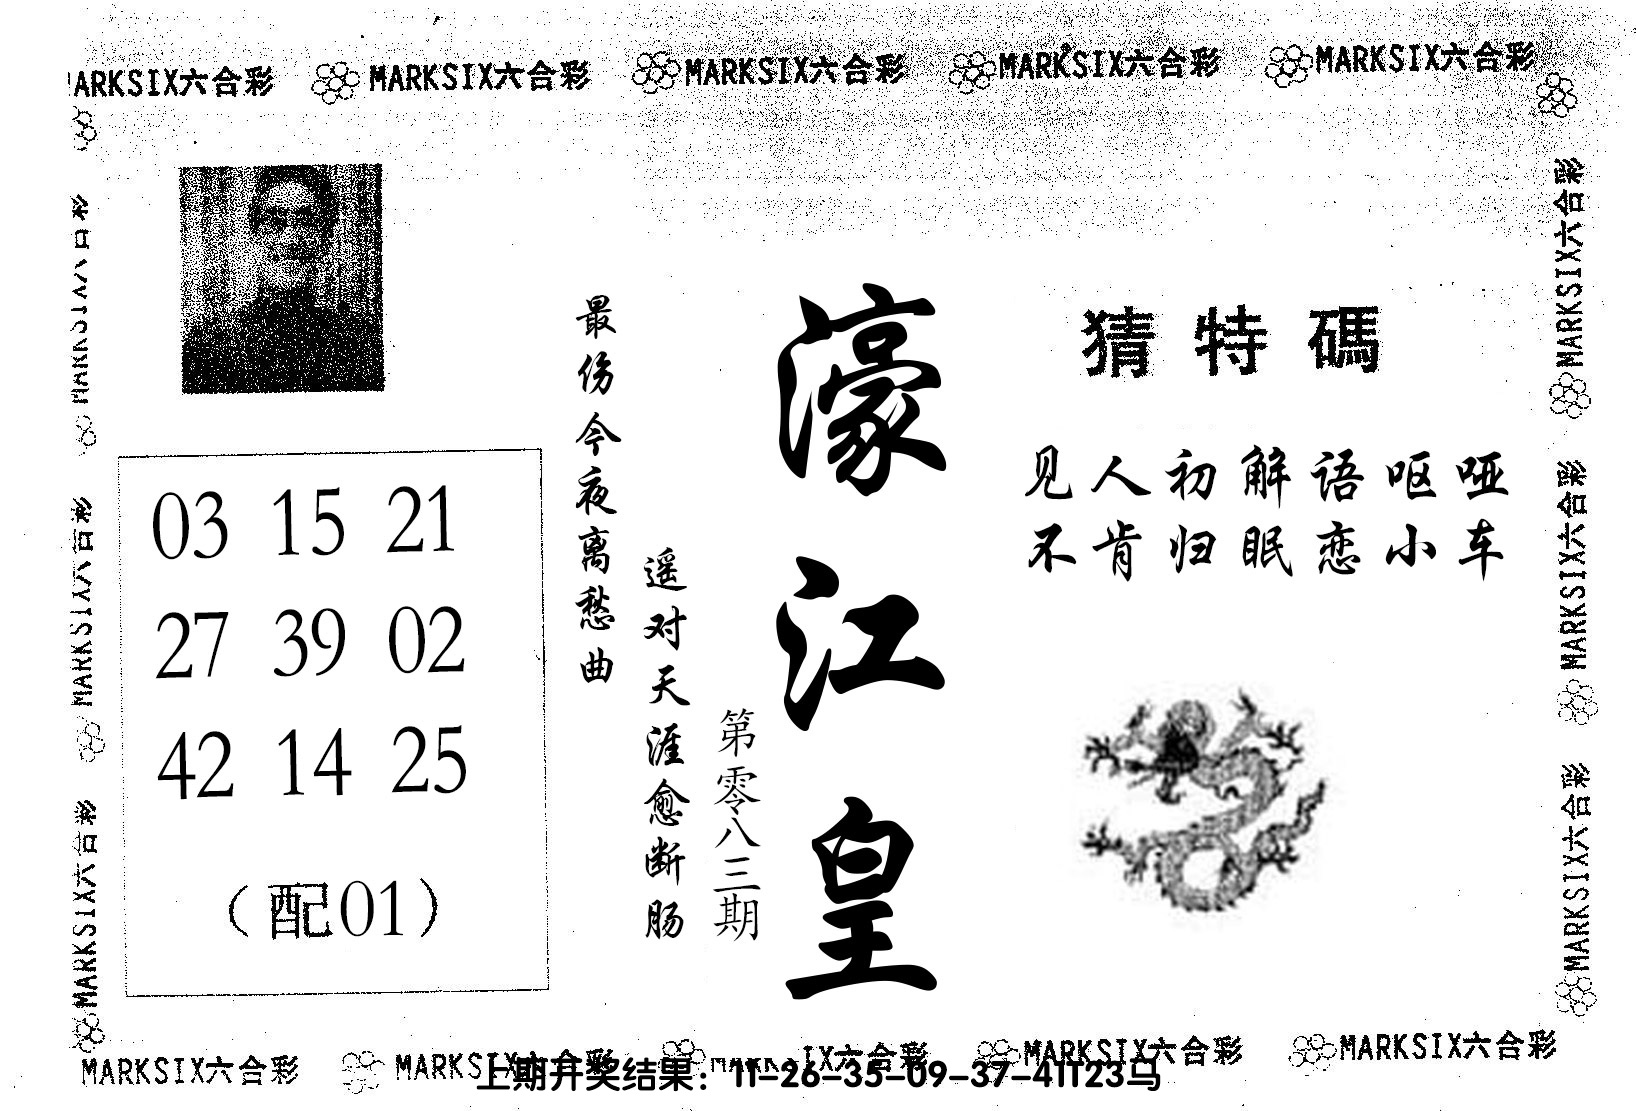 MARKSIX六合彩 MARKSIX六合彩 MARKSIX六合彩 MARKSIX六合彩
MARKSIX六合彩
MARKSIX六合彩
MARKSIX六合彩
MARKSIX六合彩
MARKSIX六合彩
03 15 21
27 39 02
42 14 25
（配01）
最伤今夜离愁曲
遥对天涯愈断肠
第零八三期
濠江皇
猜特碼
见人初解语呕哑
不肯归眠恋小车
MARKSIX六合彩 MARKSIX六合彩 MARKSIX六合彩
上期开奖结果：11-26-35-09-37-41T23马